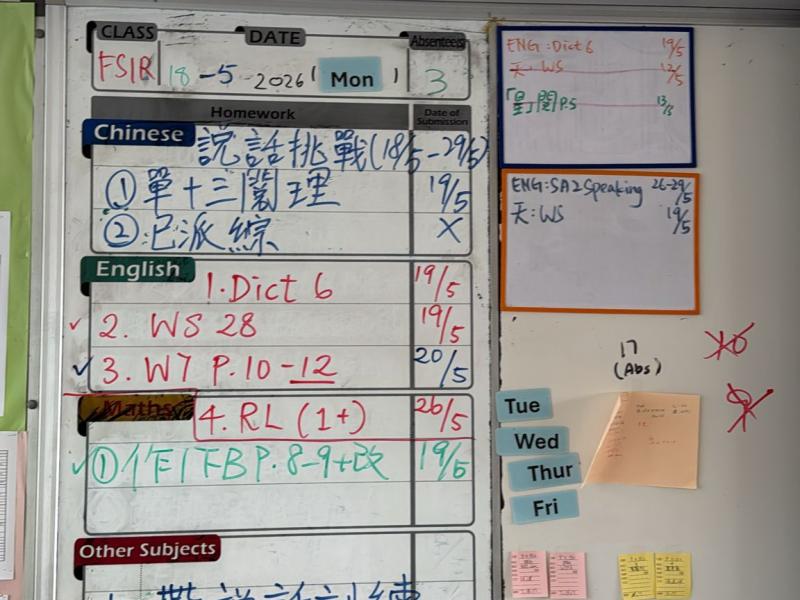 CLASS DATE Absentees
18-5 2026 ( Mon ) 3
Homework Date of Submission
Chinese 說話挑戰(18/5-29/5)
① 單十三 理 19/5
② 已派綜 X
English 1. Dict 6 19/5
2. WS 28 19/5
3. W7 P.10-12 20/5
Maths 4. RL (1+) 26/5
① 作 P.8-9+改 19/5
Other Subjects
ENG: Dict 6 19/5
天: WS 12/5
P.5 13/5
ENG: SA2 Speaking 26-29/5
天: WS 19/5
17
(Abs)
Tue
Wed
Thur
Fri